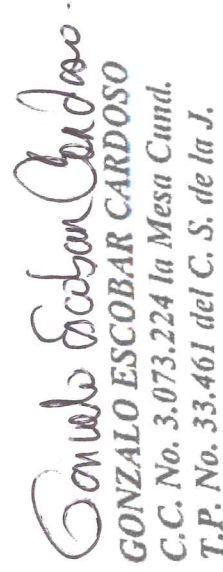 Gonzalo Escobar Cardoso.
GONZALO ESCOBAR CARDOSO
C.C. No. 3.073.224 la Mesa Cund.
T.P. No. 33.461 del C. S. de la J.